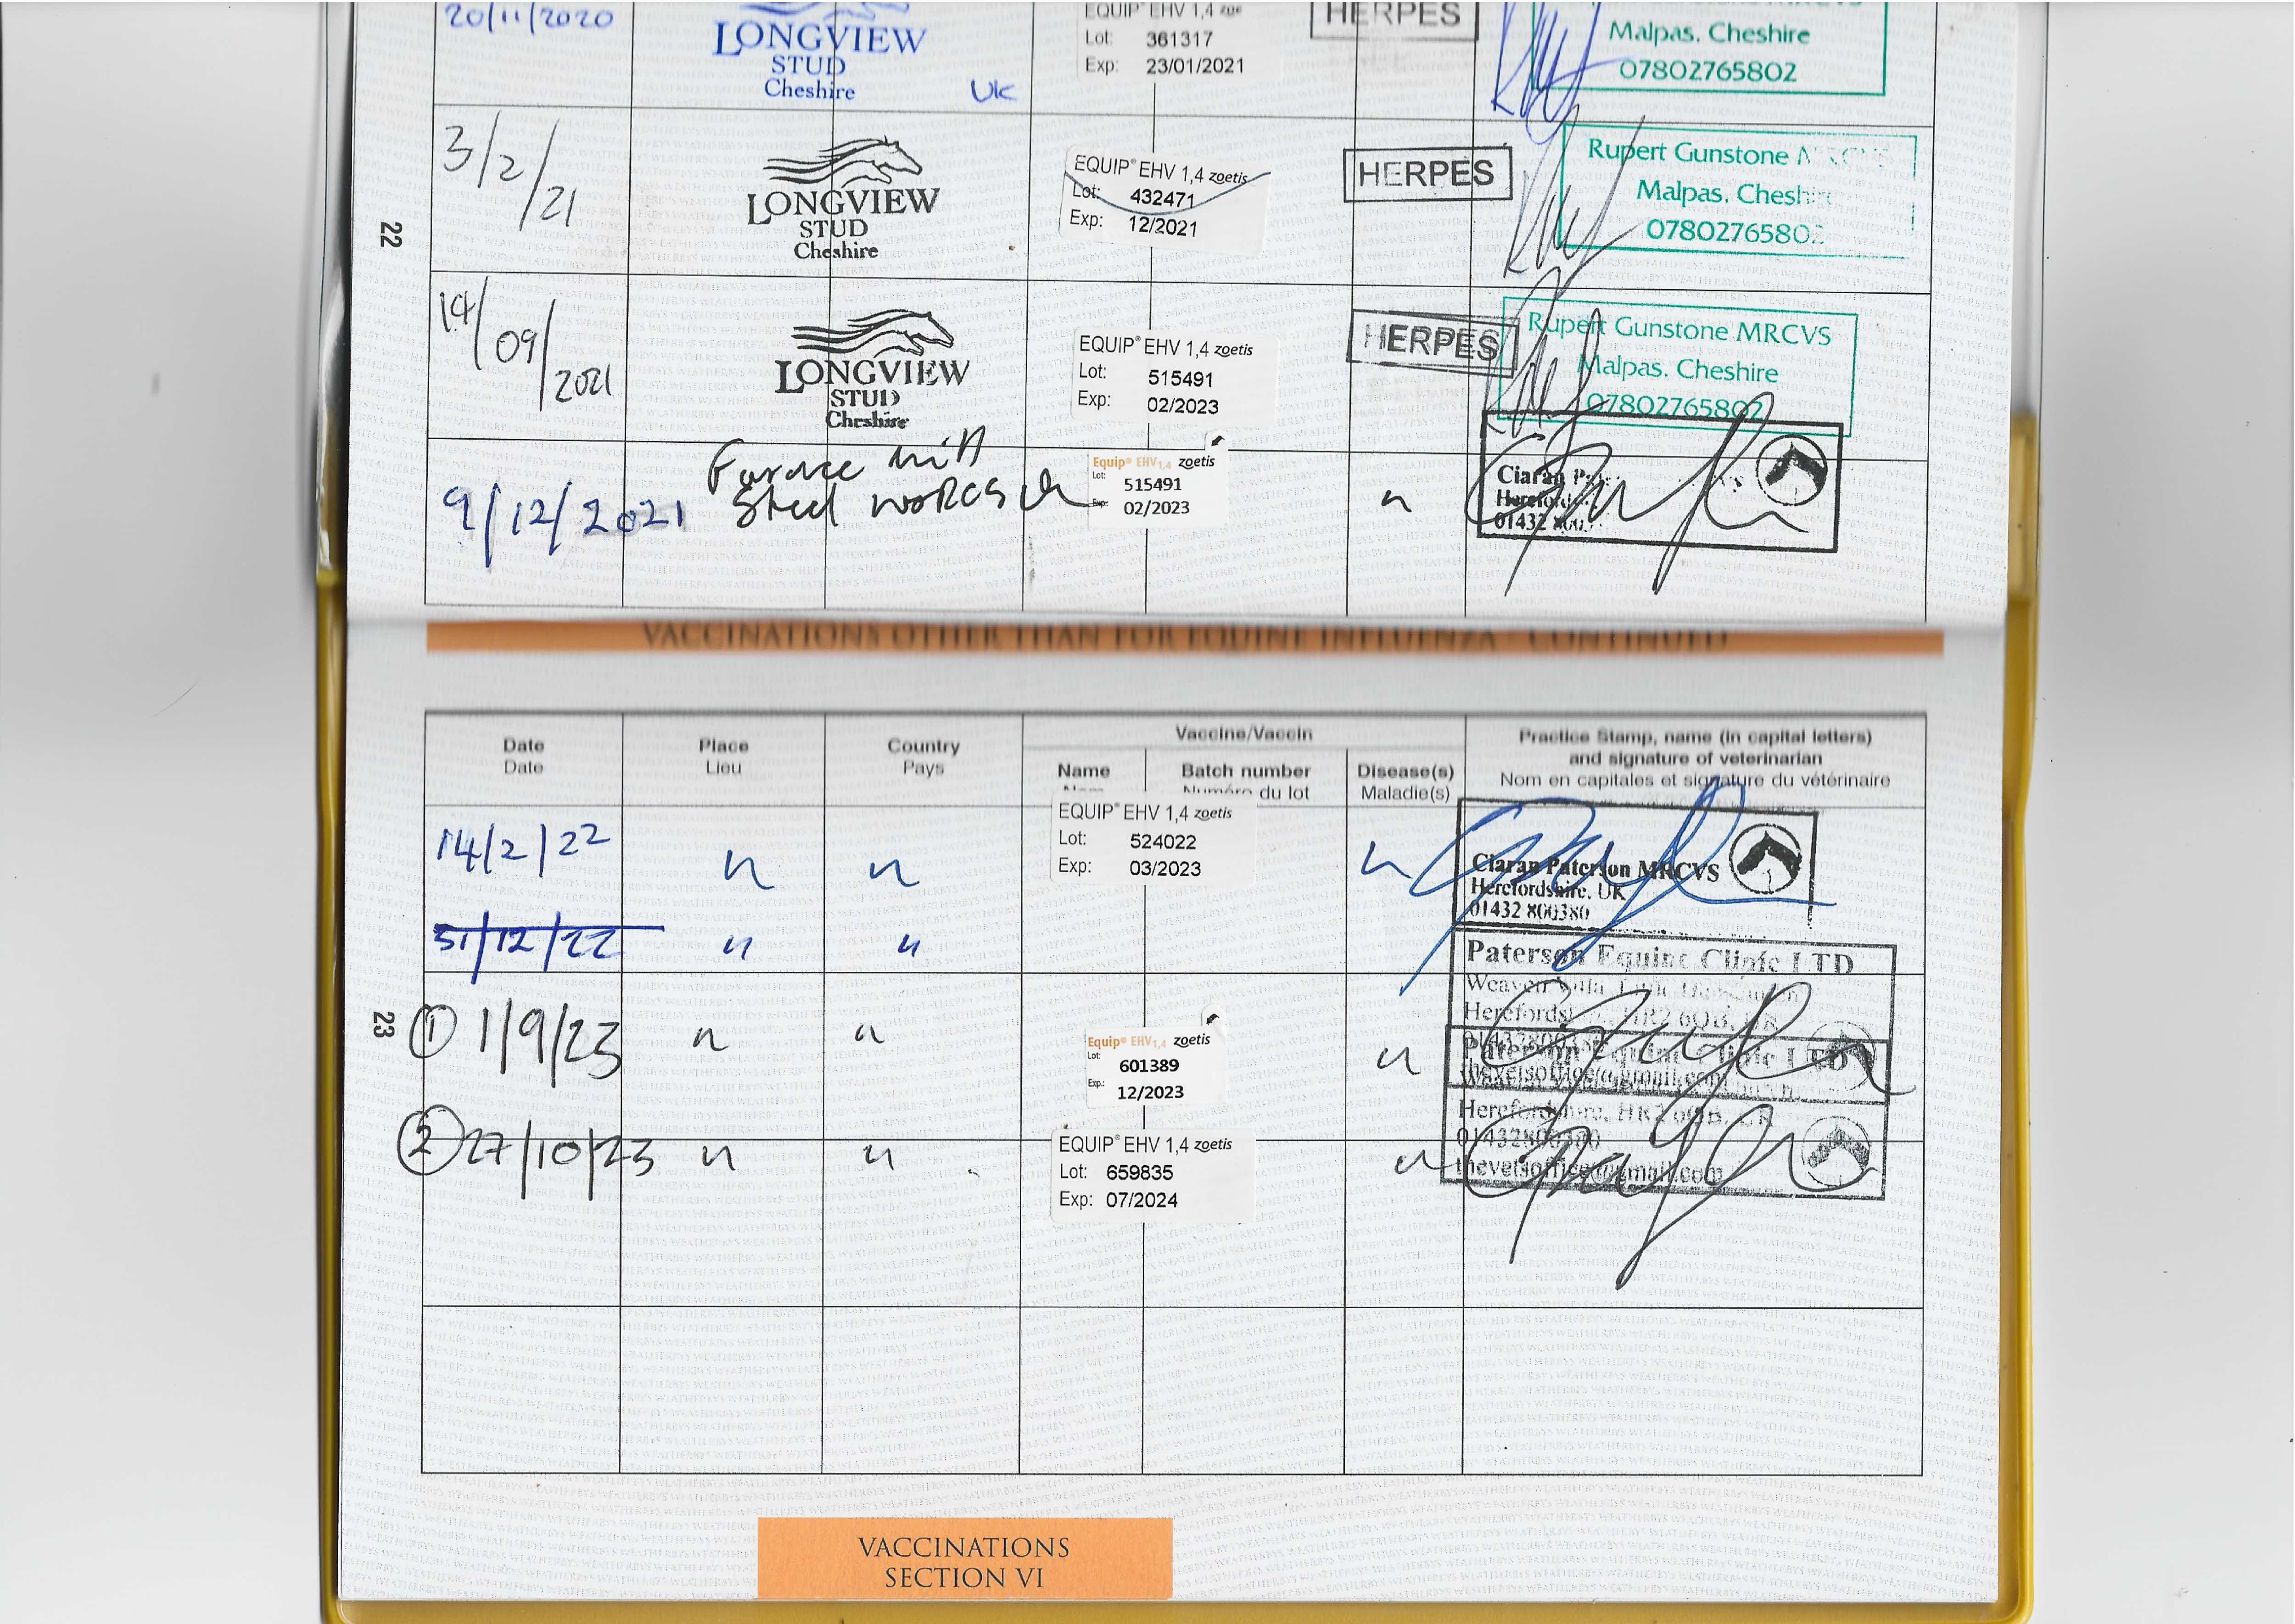 20/11/2020
LONGVIEW
STUD
Cheshire
UK
EQUIP® EHV 1,4
Lot: 361317
Exp: 23/01/2021
HERPES
Malpas. Cheshire
07802765802
22
3/2/21
LONGVIEW
STUD
Cheshire
EQUIP® EHV 1,4 zoetis
Lot: 432471
Exp: 12/2021
HERPES
Rupert Gunstone
Malpas. Cheshire
07802765802
14/09/2021
LONGVIEW
STUD
Cheshire
EQUIP® EHV 1,4 zoetis
Lot: 515491
Exp: 02/2023
HERPES
Rupert Gunstone MRCVS
Malpas. Cheshire
07802765802
9/12/2021
Steel works
Equip® EHV1,4 zoetis
Lot: 515491
Exp: 02/2023
"
Ciaran
01432
VACCINATIONS OTHER THAN FOR EQUINE INFLUENZA - CONTINUED
Date
Date
Place
Lieu
Country
Pays
Vaccine/Vaccin
Name
Batch number
Numéro du lot
Disease(s)
Maladie(s)
Practice Stamp, name (in capital letters)
and signature of veterinarian
Nom en capitales et signature du vétérinaire
14/2/22
"
"
EQUIP® EHV 1,4 zoetis
Lot: 524022
Exp: 03/2023
"
Ciaran Paterson MRCVS
Herefordshire. UK
01432 800380
31/12/22
"
"
Paterson Equine Clinic LTD
23
① 1/9/23
"
"
Equip® EHV1,4 zoetis
Lot: 601389
Exp.: 12/2023
"
Paterson Equine Clinic LTD
thevetsoffice@gmail.com
② 27/10/23
"
"
EQUIP® EHV 1,4 zoetis
Lot: 659835
Exp: 07/2024
"
Herefordshire, HR2 6QB, UK
01432800380
thevetsoffice@gmail.com
VACCINATIONS
SECTION VI